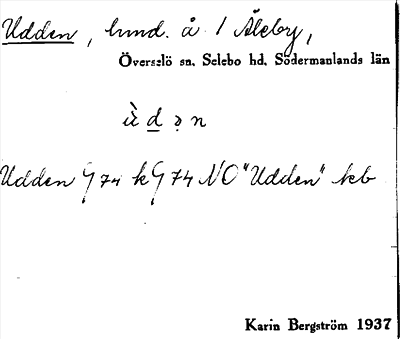 Udden, hmd. å 1 Äleby,
Överselö sn. Selebo hd. Södermanlands län
ùdən
Udden G 74 k G 74 NO "Udden" kb
Karin Bergström 1937